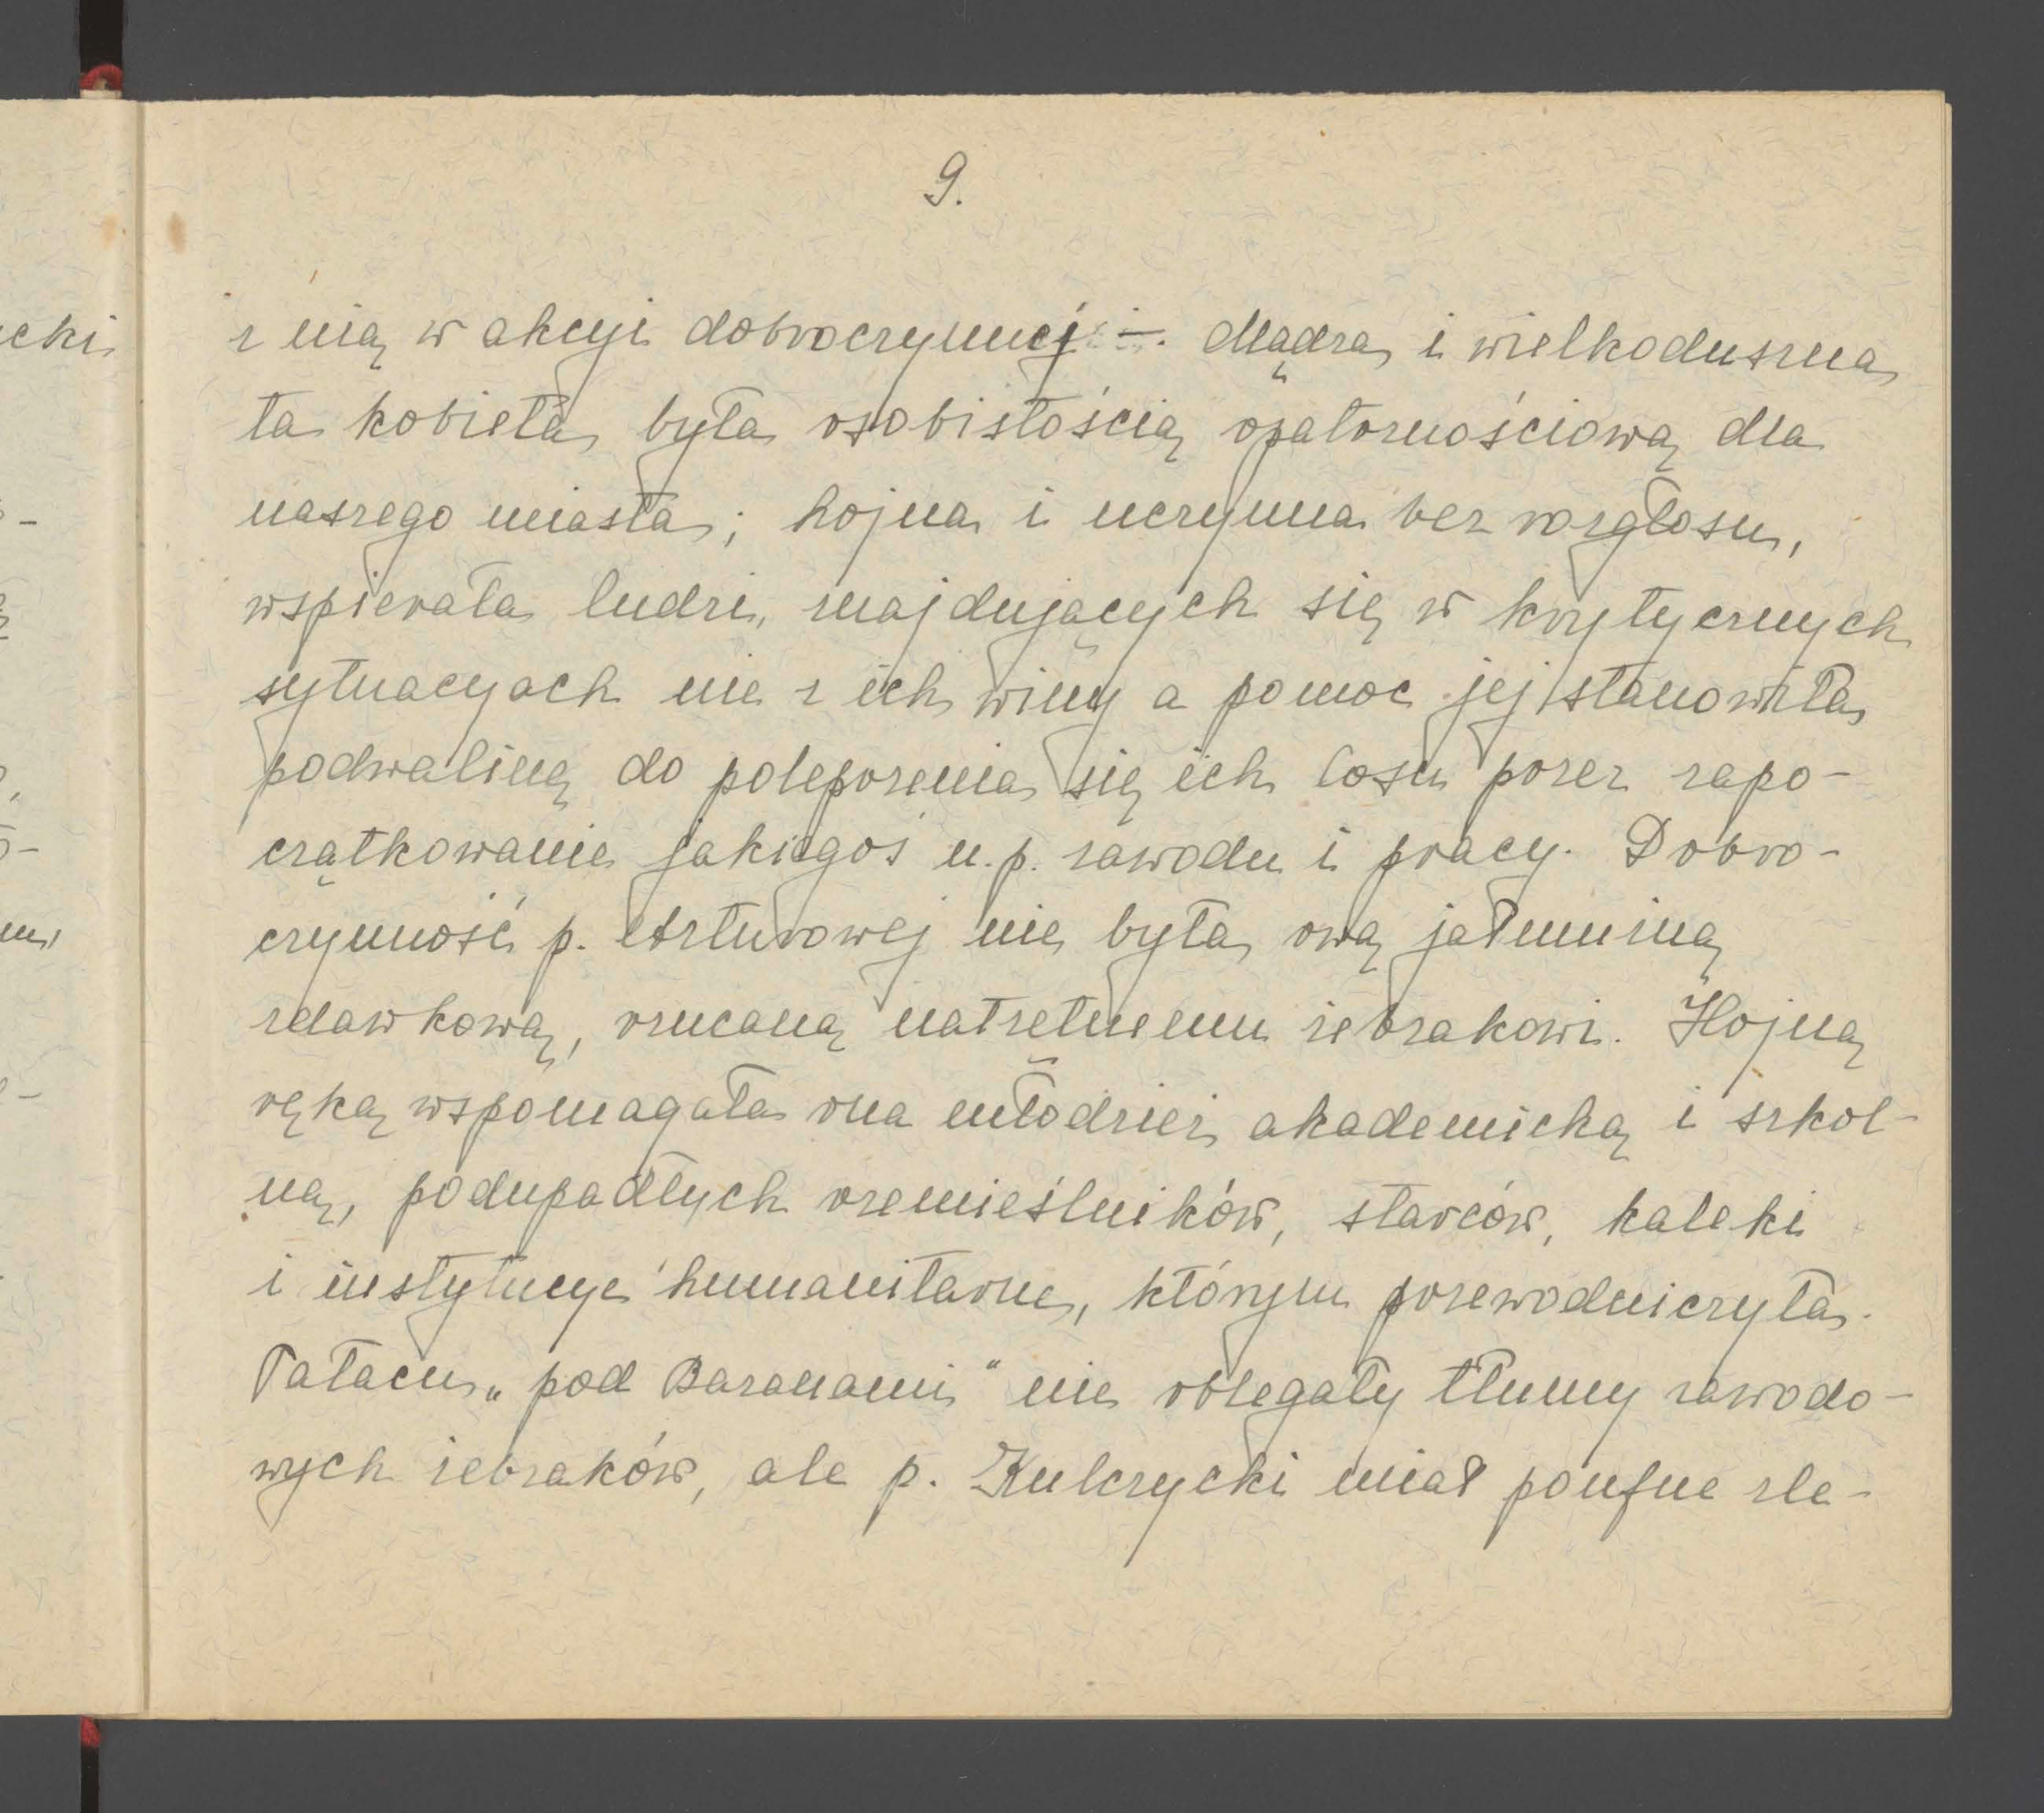 9.
z nią w akcyi dobroczynnej —. Mądra i wielkoduszna
ta kobieta była osobistością opatrznościową dla
naszego miasta; hojna i uczynna bez rozgłosu,
wspierała ludzi, znajdujących się w krytycznych
sytuacyach nie z ich winy a pomoc jej stanowiła
podwalinę do polepszenia się ich losu przez zapo-
czątkowanie jakiegoś n.p. zawodu i pracy. Dobro-
czynność p. Arturowej nie była ową jałmużną
zdawkową, rzucaną natrętnemu żebrakowi. Hojną
ręką wspomagała ona młodzież akademicką i szkol-
ną, podupadłych rzemieślników, starców, kaleki
i instytucye humanitarne, którym przewodniczyła.
Pałacu „pod Baranami" nie oblegały tłumy zawodo-
wych żebraków, ale p. Kulczycki miał poufne zle-
cki